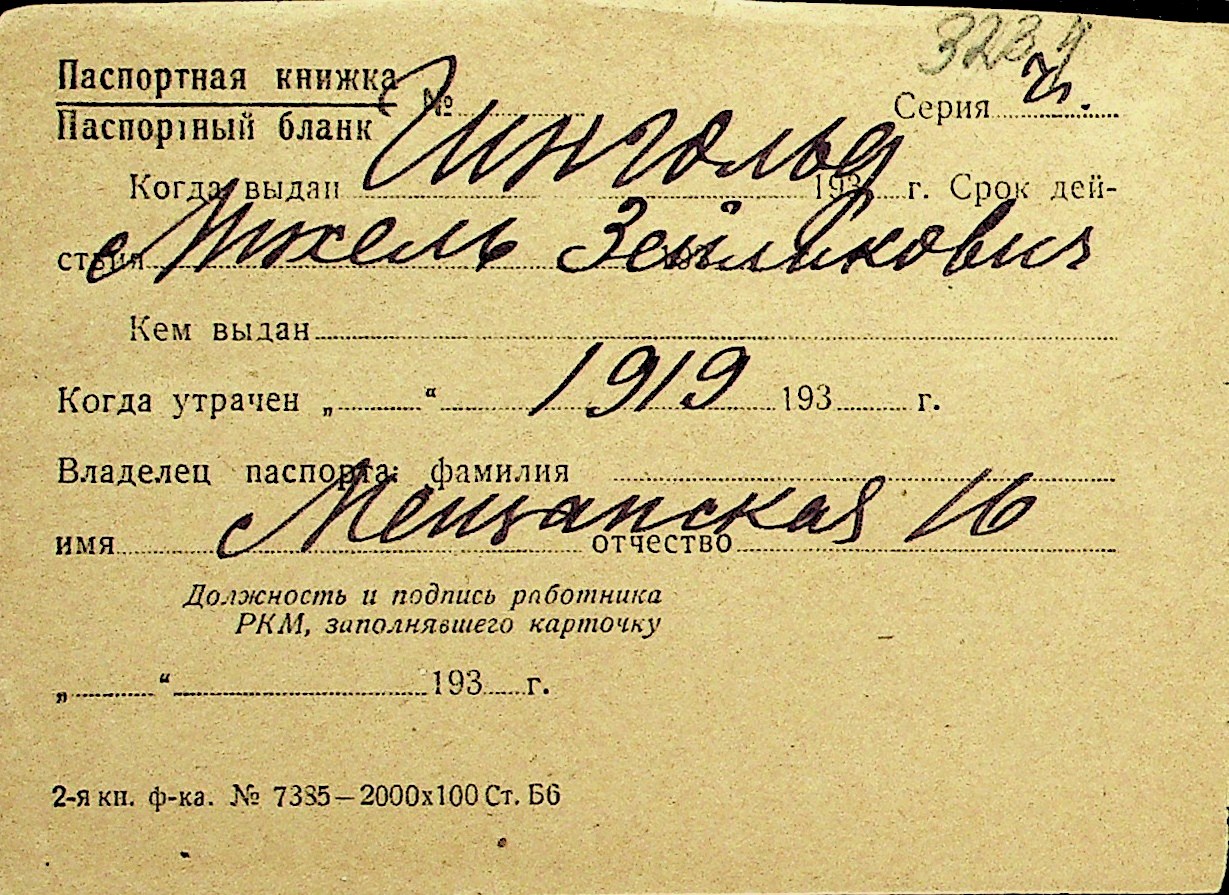 3234
Паспортная книжка
Паспортный бланк № Серия
Гингольд
Когда выдан 193 г. Срок дей-
ствия
Михель Зейликович
Кем выдан
1919
Когда утрачен „ “ 193 г.
Владелец паспорта: фамилия
Мещанская 16
имя отчество
Должность и подпись работника
РКМ, заполнявшего карточку
„ “ 193 г.
2-я кн. ф-ка. № 7385—2000х100 Ст. Б6